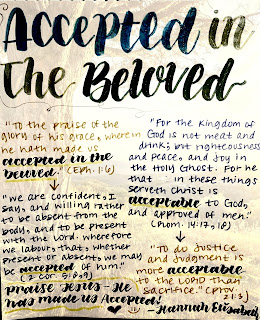 Accepted in
The Beloved
"To the praise of the
glory of his grace, wherein
he hath made us
accepted in the
beloved." (Eph. 1:6)
"we are confident, I
say, and willing rather
to be absent from the
body, and to be present
with the Lord. wherefore
we labour, that, whether
present or absent, we may
be accepted of him."
(2 Cor. 5:8,9)
praise Jesus - He
has made us Accepted!
"For the Kingdom of
God is not meat and
drink; but righteousness
and peace, and joy in
the Holy Ghost. For he
that in these things
serveth Christ is
acceptable to God,
and approved of men."
(Rom. 14:17, 18)
"To do Justice
and Judgment is
more acceptable
to the LORD than
sacrifice." (Prov.
21:3)
- Hannah Elisabeth